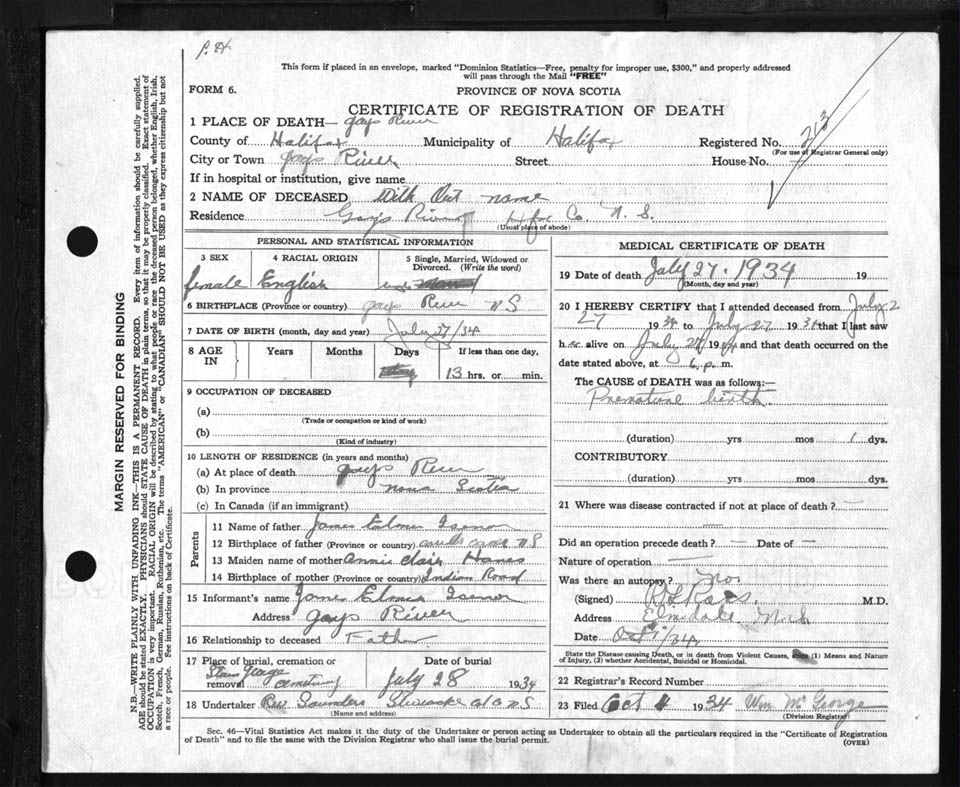 This form if placed in an envelope, marked "Dominion Statistics—Free, penalty for improper use, $300," and properly addressed
will pass through the Mail "FREE"
FORM 6.
PROVINCE OF NOVA SCOTIA
CERTIFICATE OF REGISTRATION OF DEATH
1 PLACE OF DEATH— Gays River
County of Halifax Municipality of Halifax Registered No. 213
(For use of Registrar General only)
City or Town Gays River Street House No.
If in hospital or institution, give name
2 NAME OF DECEASED With Out name
Residence Gays River Hfx Co. N. S.
(Usual place of abode)
PERSONAL AND STATISTICAL INFORMATION
3 SEX 4 RACIAL ORIGIN 5 Single, Married, Widowed or Divorced. (Write the word)
female English
6 BIRTHPLACE (Province or country) Gays River NS
7 DATE OF BIRTH (month, day and year) July 27/34
8 AGE IN Years Months Days If less than one day,
13 hrs. or min.
9 OCCUPATION OF DECEASED
(a)
(Trade or occupation or kind of work)
(b)
(Kind of industry)
10 LENGTH OF RESIDENCE (in years and months)
(a) At place of death Gays River
(b) In province Nova Scotia
(c) In Canada (if an immigrant)
Parents
11 Name of father James Elmer Isenor
12 Birthplace of father (Province or country) NS
13 Maiden name of mother Annie Clair
14 Birthplace of mother (Province or country) Indian Road
15 Informant's name James Elmer Isenor
Address Gays River
16 Relationship to deceased Father
17 Place of burial, cremation or removal George Date of burial
July 28 1934
18 Undertaker Rev Saunders Stewiacke NS
(Name and address)
MEDICAL CERTIFICATE OF DEATH
19 Date of death July 27. 1934 19
(Month, day and year)
20 I HEREBY CERTIFY that I attended deceased from July 2
27 1934 to July 27 1934 that I last saw
h alive on July 27 1934 and that death occurred on the
date stated above, at 6 p. m.
The CAUSE of DEATH was as follows:—
Premature birth
(duration) yrs mos 1 dys.
CONTRIBUTORY
(duration) yrs mos dys.
21 Where was disease contracted if not at place of death? —
Did an operation precede death? — Date of —
Nature of operation
Was there an autopsy? no
(Signed) M.D.
Address Elmsdale
Date Oct 1/34
State the Disease causing Death, or in death from Violent Causes, state (1) Means and Nature
of Injury, (2) whether Accidental, Suicidal or Homicidal.
22 Registrar's Record Number
23 Filed Oct 4 1934 Wm McGeorge
(Division Registrar)
Sec. 46—Vital Statistics Act makes it the duty of the Undertaker or person acting as Undertaker to obtain all the particulars required in the "Certificate of Registration
of Death" and to file the same with the Division Registrar who shall issue the burial permit.
(OVER)
MARGIN RESERVED FOR BINDING
N.B.—WRITE PLAINLY WITH UNFADING INK—THIS IS A PERMANENT RECORD. Every item of information should be carefully supplied.
AGE should be stated EXACTLY. PHYSICIANS should STATE CAUSE OF DEATH in plain terms, so that it may be properly classified. Exact statement of
OCCUPATION is very important. RACIAL ORIGIN will be described by stating to what people or race the deceased person belonged, whether English, Irish,
Scotch, French, German, Russian, Ruthenian, etc. The terms "AMERICAN" or "CANADIAN" SHOULD NOT BE USED as they express citizenship but not
a race or people. See instructions on back of Certificate.